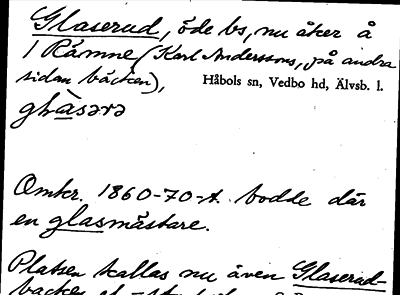 Glaserud, öde bs, nu åker å
1 Rämne (Karl Anderssons, på andra
sidan bäcken),
Håbols sn, Vedbo hd, Älvsb. l.
Omkr. 1860-70-t. bodde där
en glasmästare.
Platsen kallas nu även Glaserud-